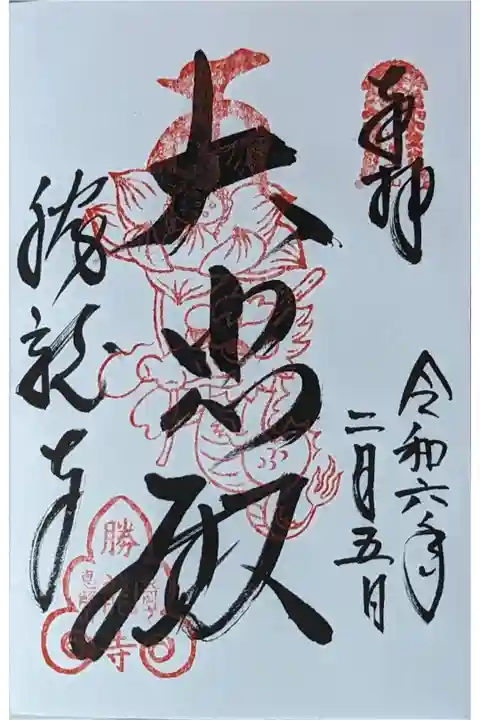 奉拝
令和六年
二月五日
大悲殿
勝龍寺
勝
龍
寺